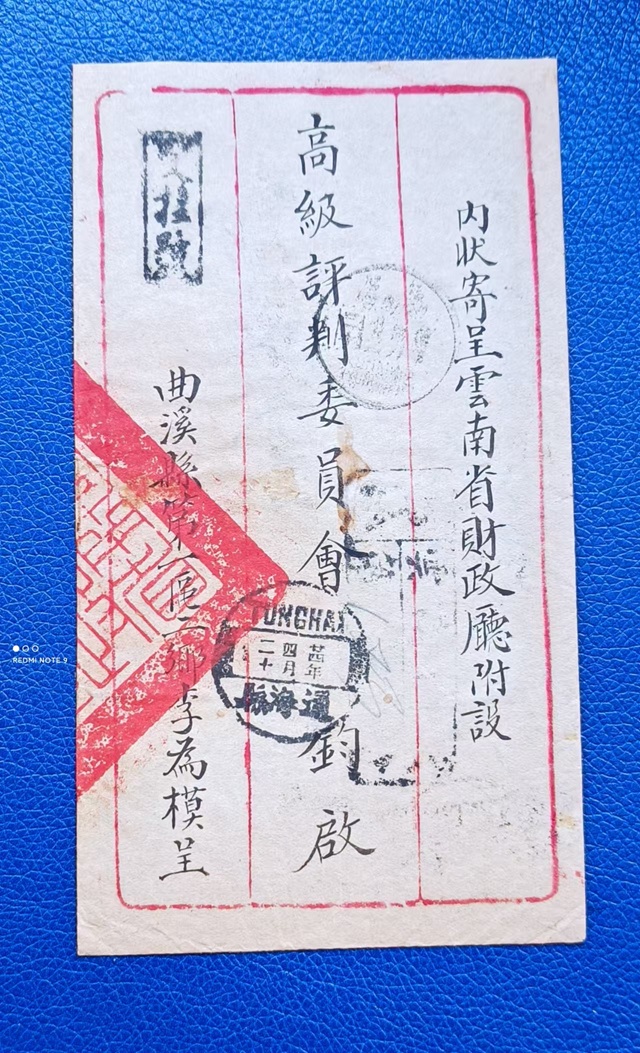 內状寄呈雲南省財政廳附設
高級評判委員會鈞啟
曲溪縣第一區三鄉李為模呈
挂號
TUNGHAI
廿年
四月
二十
通海
REDMI NOTE 9